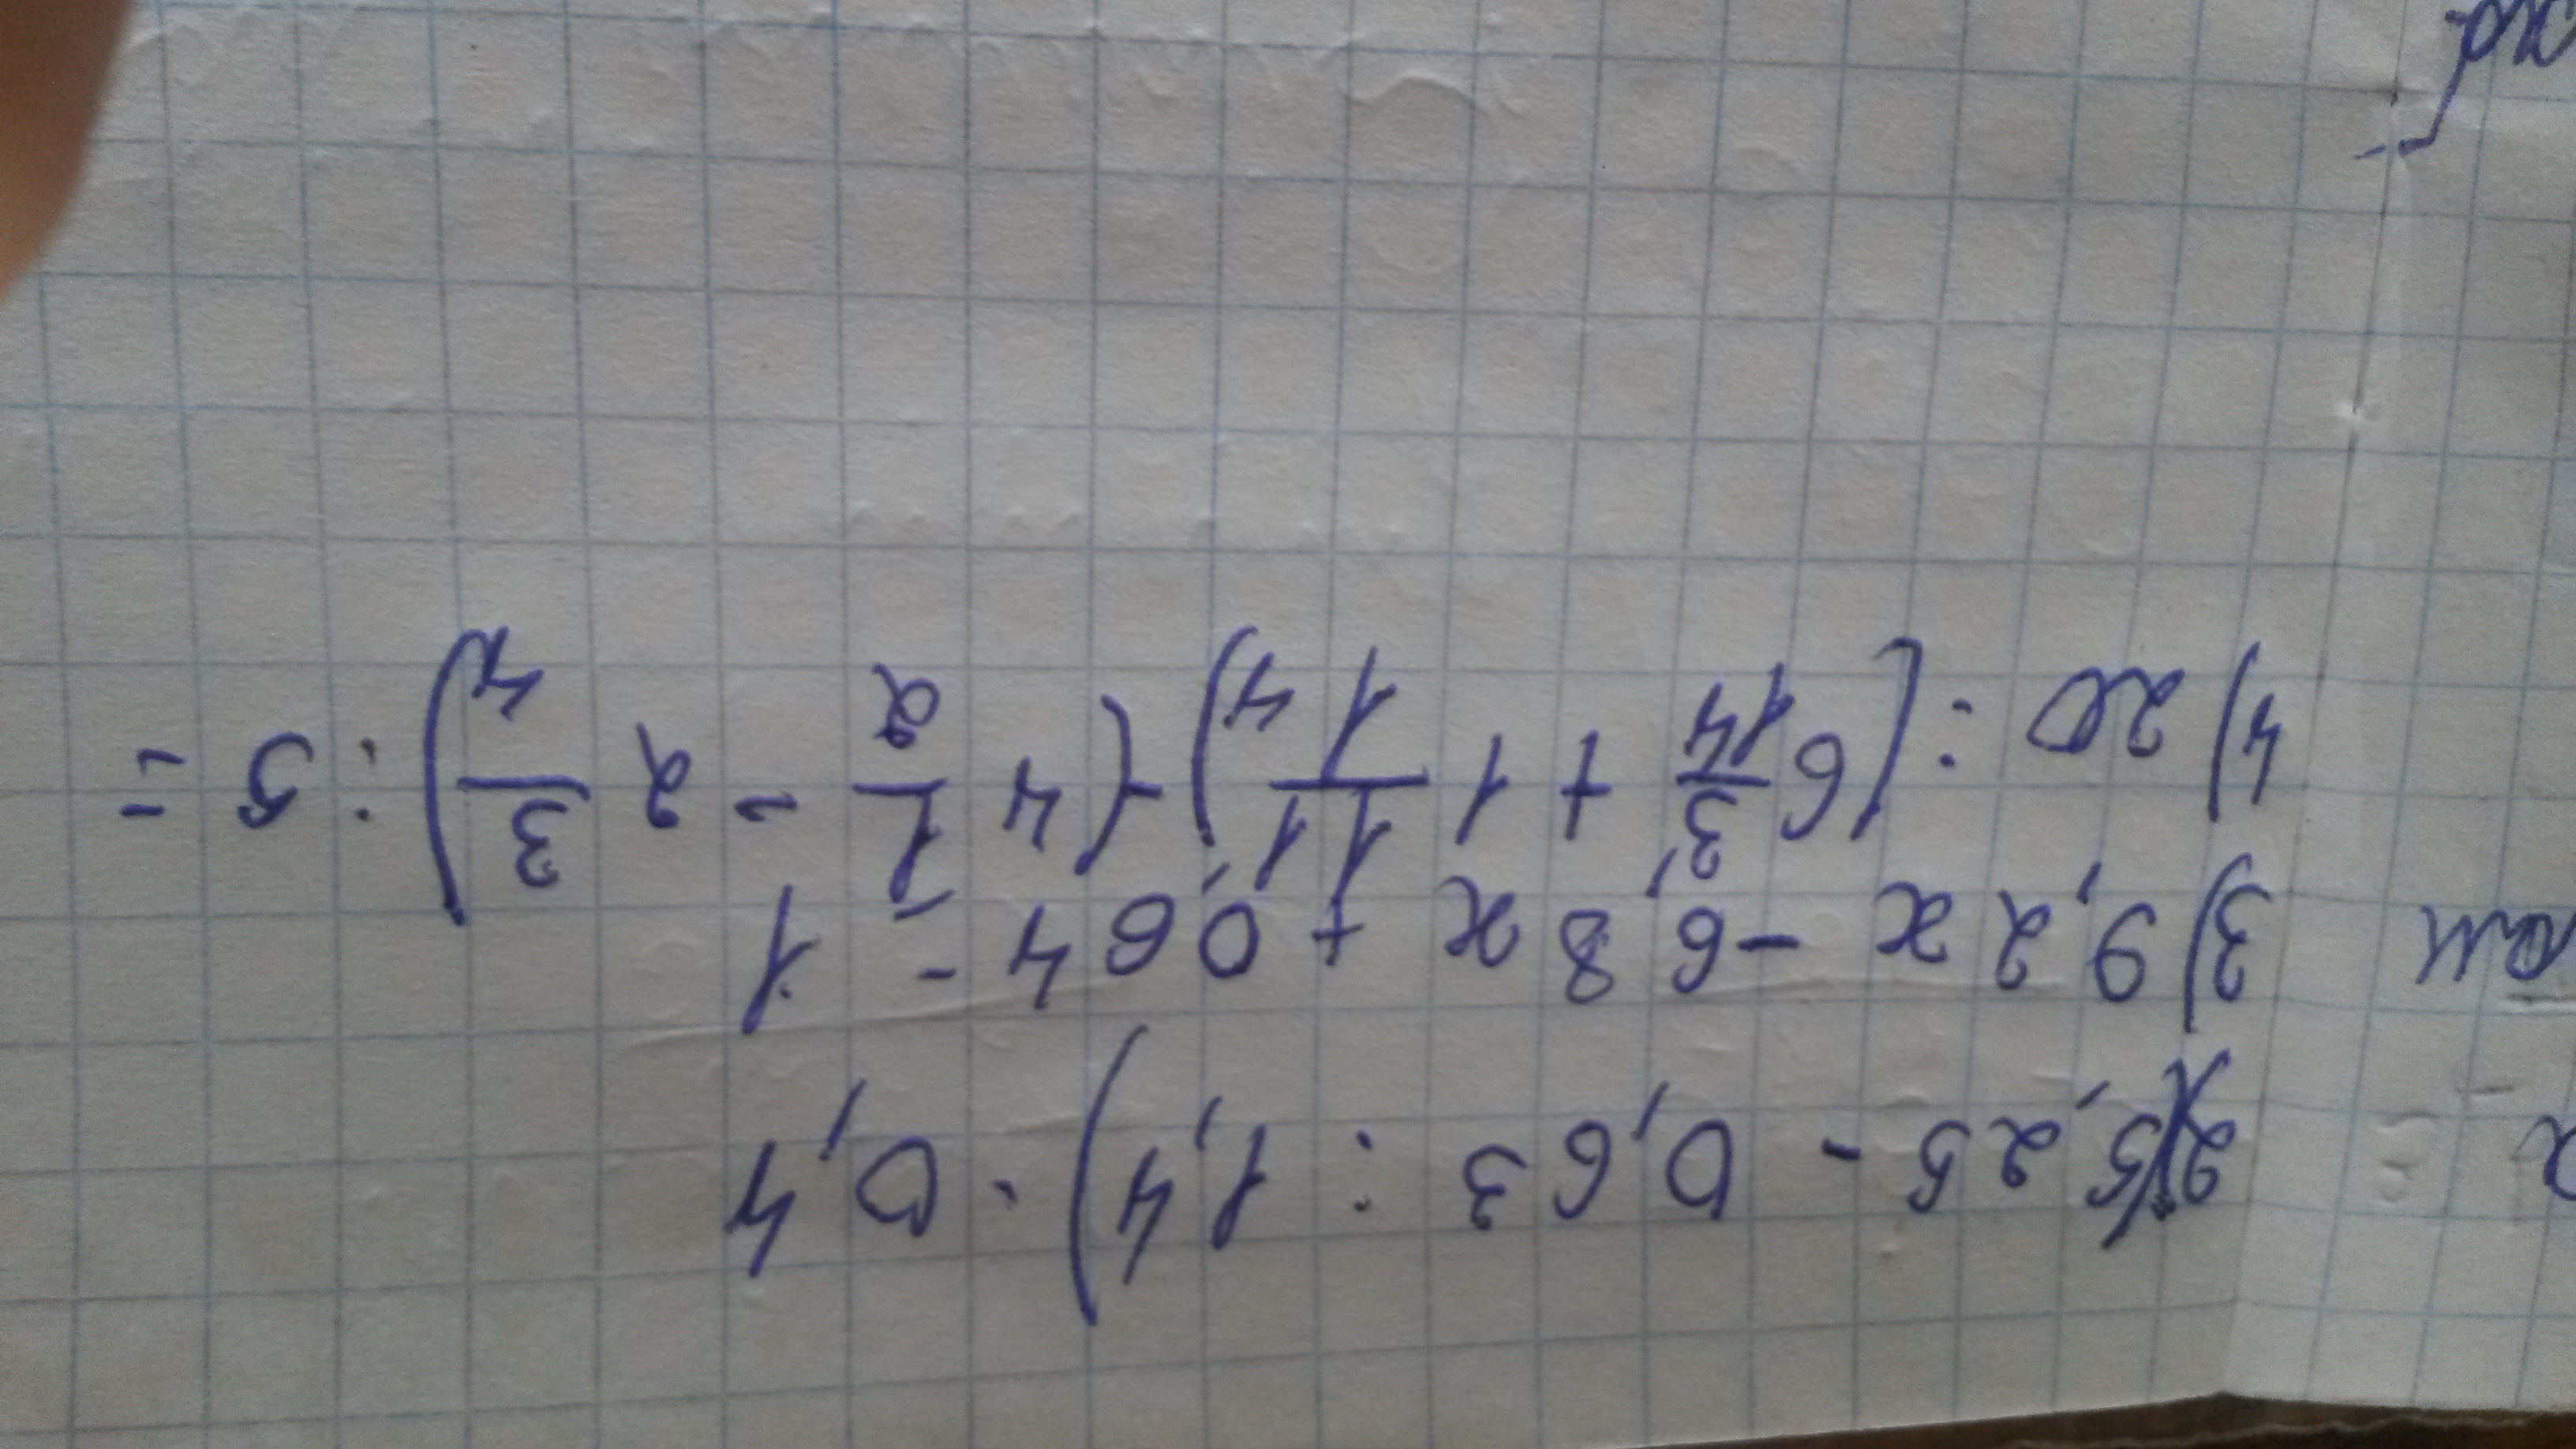 2)(5,25 - 0,63 : 1,4) · 0,4
3) 9,2x - 6,8x + 0,64 = 1
4) 20 : (6 3/14 + 1 11/14) - (4 1/2 - 2 3/4) : 5 =